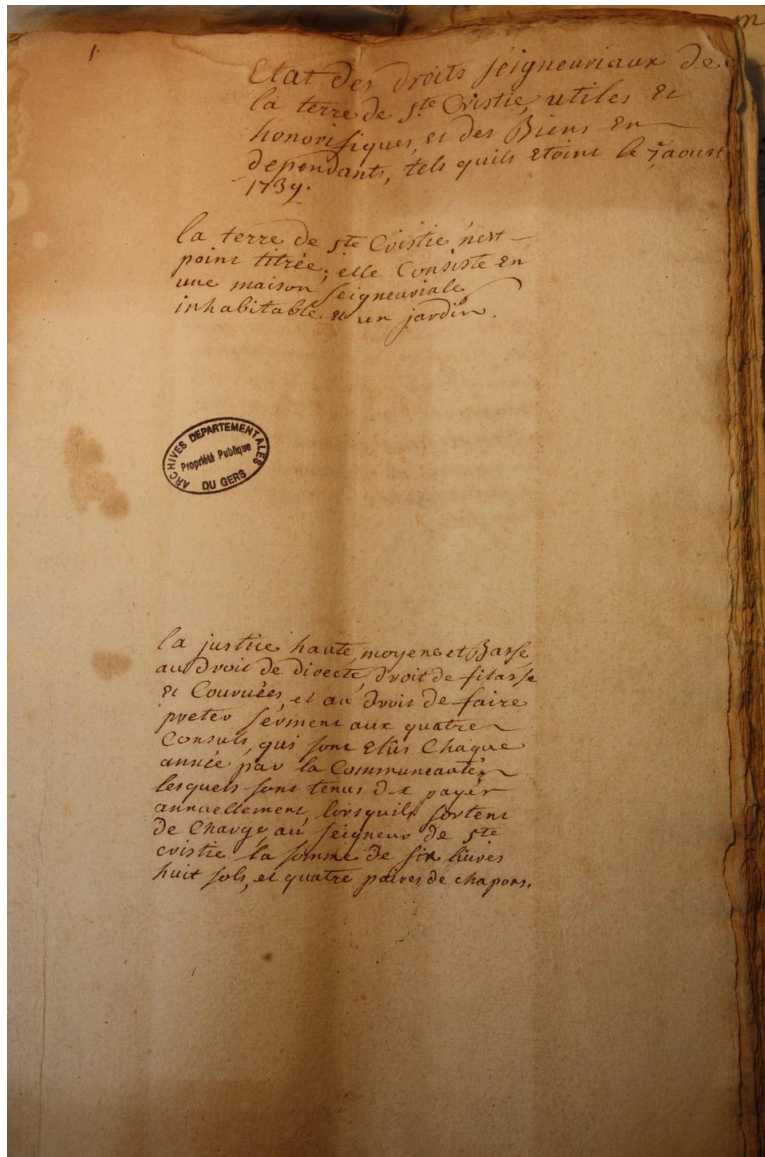 1.
Etat des droits seigneuriaux de
la terre de s.te Cristie, utiles et
honorifiques, et des Biens en
dependants, tels quils etoint le 7 aoust
1739.
la terre de s.te Cristie n'est
point titrée; elle Consiste en
une maison seigneuriale
inhabitable et un jardin.
ARCHIVES DEPARTEMENTALES
Propriété Publique
DU GERS
la justice haute, moyene et Basse
au droit de directe, droit de filasse
et Couruées, et au droit de faire
preter serment aux quatre
Consuls, qui sont elus Chaque
année par la Communeauté,
lesquels sont tenus de payer
annuellement, lorsquils sortent
de Charge au seigneur de s.te
cristie la somme de six liures
huit sols, et quatre paires de chapons.